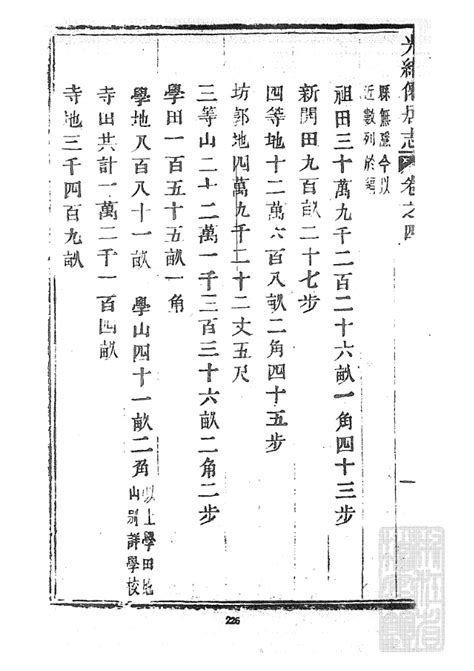 光緒僊居志 卷之四
縣無蹟今以
近數列於編
祖田三十萬九千二百二十六畝一角四十三步
新開田九百畝二十七步
四等地十二萬六百八畝二角四十五步
坊郭地四萬九千二十二丈五尺
三等山二十二萬一千三百三十六畝二角二步
學田一百五十五畝一角
學地八百八十一畝 學山四十一畝二角 以上學田地
山別詳學校
寺田共計一萬二千一百四畝
寺地三千四百九畝
一
226